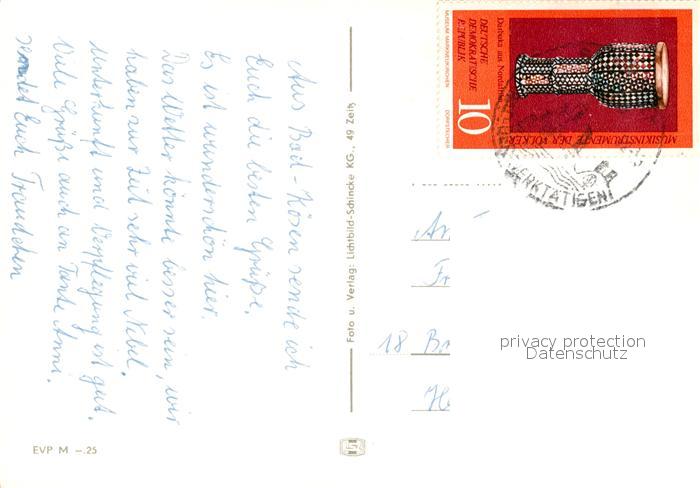 Aus Bad-Kösen sende ich
Euch die besten Grüße.
Es ist wunderschön hier.
Das Wetter könnte besser sein, wir
haben zur Zeit sehr viel Nebel.
Unterkunft und Verpflegung ist gut.
Viele Grüße auch an Tante Anni.
sendet Euch Traudchen
EVP M –.25
Foto u. Verlag: Lichtbild-Schincke KG., 49 Zeitz
MUSEUM MARKNEUKIRCHEN
DEUTSCHE
DEMOKRATISCHE
REPUBLIK
10
Darbuka aus Nordafrika
MUSIKINSTRUMENTE DER VÖLKER
WERKTÄTIGEN!
Fr
18 Br
privacy protection
Datenschutz